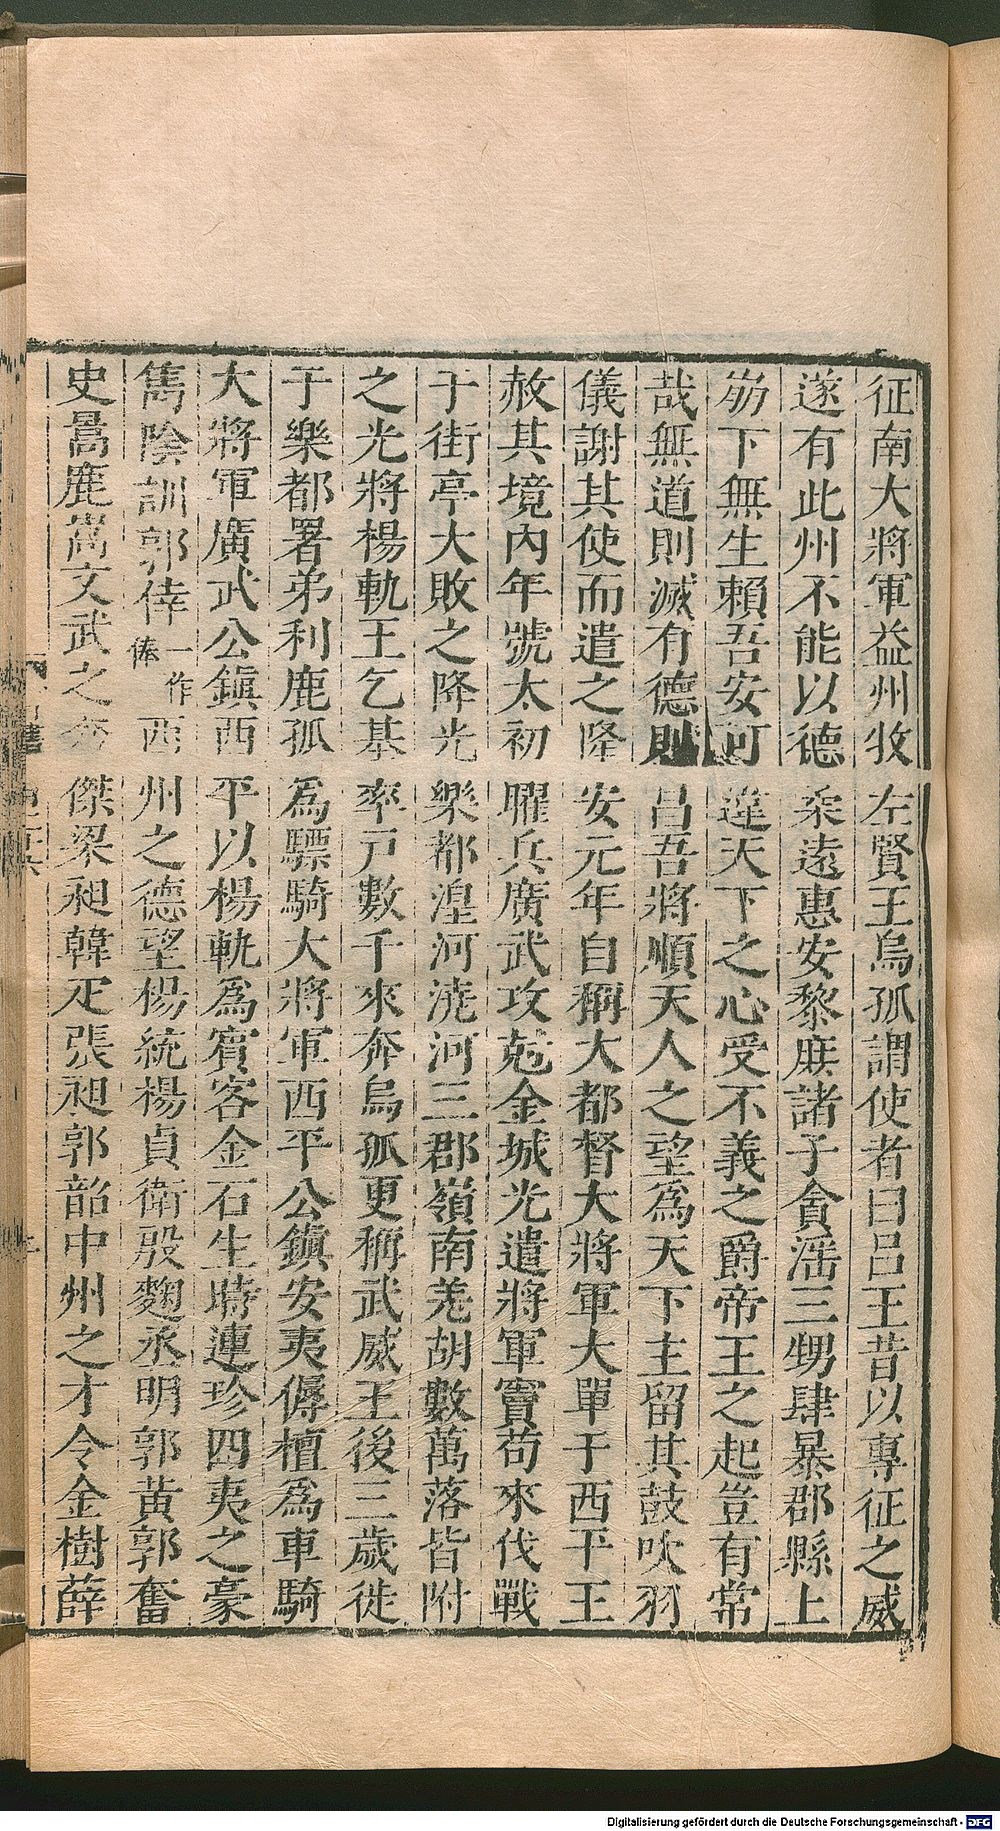 征南大將軍益州牧左賢王烏孤謂使者曰呂王昔以專征之威
遂有此州不能以德柔遠惠安黎庶諸子貪淫三甥肆暴郡縣上
崩下無生賴吾安可違天下之心受不義之爵帝王之起豈有常
哉無道則滅有德則昌吾將順天人之望為天下主留其鼓吹羽
儀謝其使而遣之隆安元年自稱大都督大將軍大單于西平王
赦其境內年號太初曜兵廣武攻尅金城光遣將軍竇苟來伐戰
于街亭大敗之降光樂都湟河澆河三郡嶺南羌胡數萬落皆附
之光將楊軌王乞基率戸數千來奔烏孤更稱武威王後三歲徙
于樂都署弟利鹿孤為驃騎大將軍西平公鎮安夷傉檀為車騎
大將軍廣武公鎮西平以楊軌為賓客金石生時連珍四夷之豪
雋陰訓郭倖一作俸西州之德望楊統楊貞衛殷麴丞明郭黃郭奮
史暠鹿嵩文武之秀傑梁昶韓疋張昶郭韶中州之才令金樹薛
Digitalisierung gefördert durch die Deutsche Forschungsgemeinschaft - DFG